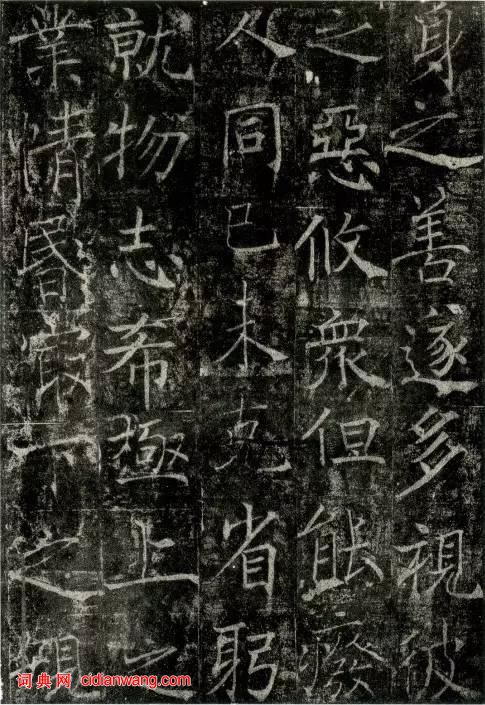 身之善遂多視彼
之惡攸衆但能癈
人同己未克省躬
就物志希極上之
業情昬㝡下之
词典网：cidianwang.com